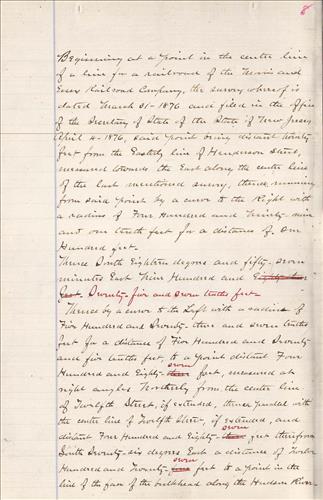 8
Beginning at a point in the centre line
of a line for a railroad of the Morris and
Essex Railroad Company, the survey whereof is
dated March 31-1876 and filed in the office
of the Secretary of State of the State of New Jersey
April 4-1876, said point being distant ninety
feet from the Easterly line of Henderson Street,
measured towards the East along the centre line
of the last mentioned survey, thence running
from said point by a curve to the Right with
a radius of Four Hundred and Ninety-nine
and one tenth feet for a distance of one
Hundred feet.
Thence South Eighteen degrees and fifty-seven
minutes East Nine Hundred and
feet Seventy-five and seven tenths feet
Thence by a curve to the Left with a radius of
Five Hundred and Seventy-three and seven tenths
feet for a distance of Five Hundred and Seventy
and five tenths feet, to a point distant Four
seven
Hundred and Eighty-three feet, measured at
right angles Northerly from the centre line
of Twelfth Street, if extended, thence parallel with
the centre line of Twelfth Street, if extended, and
seven
distant Four Hundred and Eighty-three feet therefrom
South Seventy-six degrees East a distance of Twelve
seven
Hundred and Twenty- feet to a point in the
line of the face of the bulkhead along the Hudson River